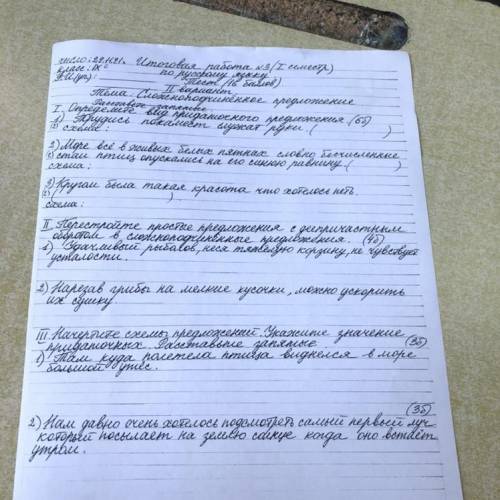 число: 28.11.21г. Итоговая работа №3 (I семестр)
класс: IX "
Ф.И(уч): по русскому языку
Тест (16 баллов)
II вариант
Тема: Сложноподчинённое предложение
Расставьте запятые
I. Определите вид придаточного предложения (6б)
1) Трудись покамест служат руки. ( )
(2) схема:
2) Море всё в живых белых пятнах словно бесчисленные
(2) стаи птиц опускались на его синюю равнину. ( )
схема:
3) Кругом была такая красота что хотелось петь.
(2) ( )
схема:
II. Перестройте простые предложения с деепричастным
оборотом в сложноподчинённые предложения. (4б)
1) Удачливый рыболов, неся тяжёлую корзину, не чувствует
усталости.
2) Нарезав грибы на мелкие кусочки, можно ускорить
их сушку.
III. Начертите схемы предложений. Укажите значение
придаточных. Расставьте запятые. (3б)
1) Там куда полетела птица виднелся в море
большой утёс.
(3б)
2) Нам давно очень хотелось подсмотреть самый первый луч
который посылает на землю солнце когда оно встаёт
утром.